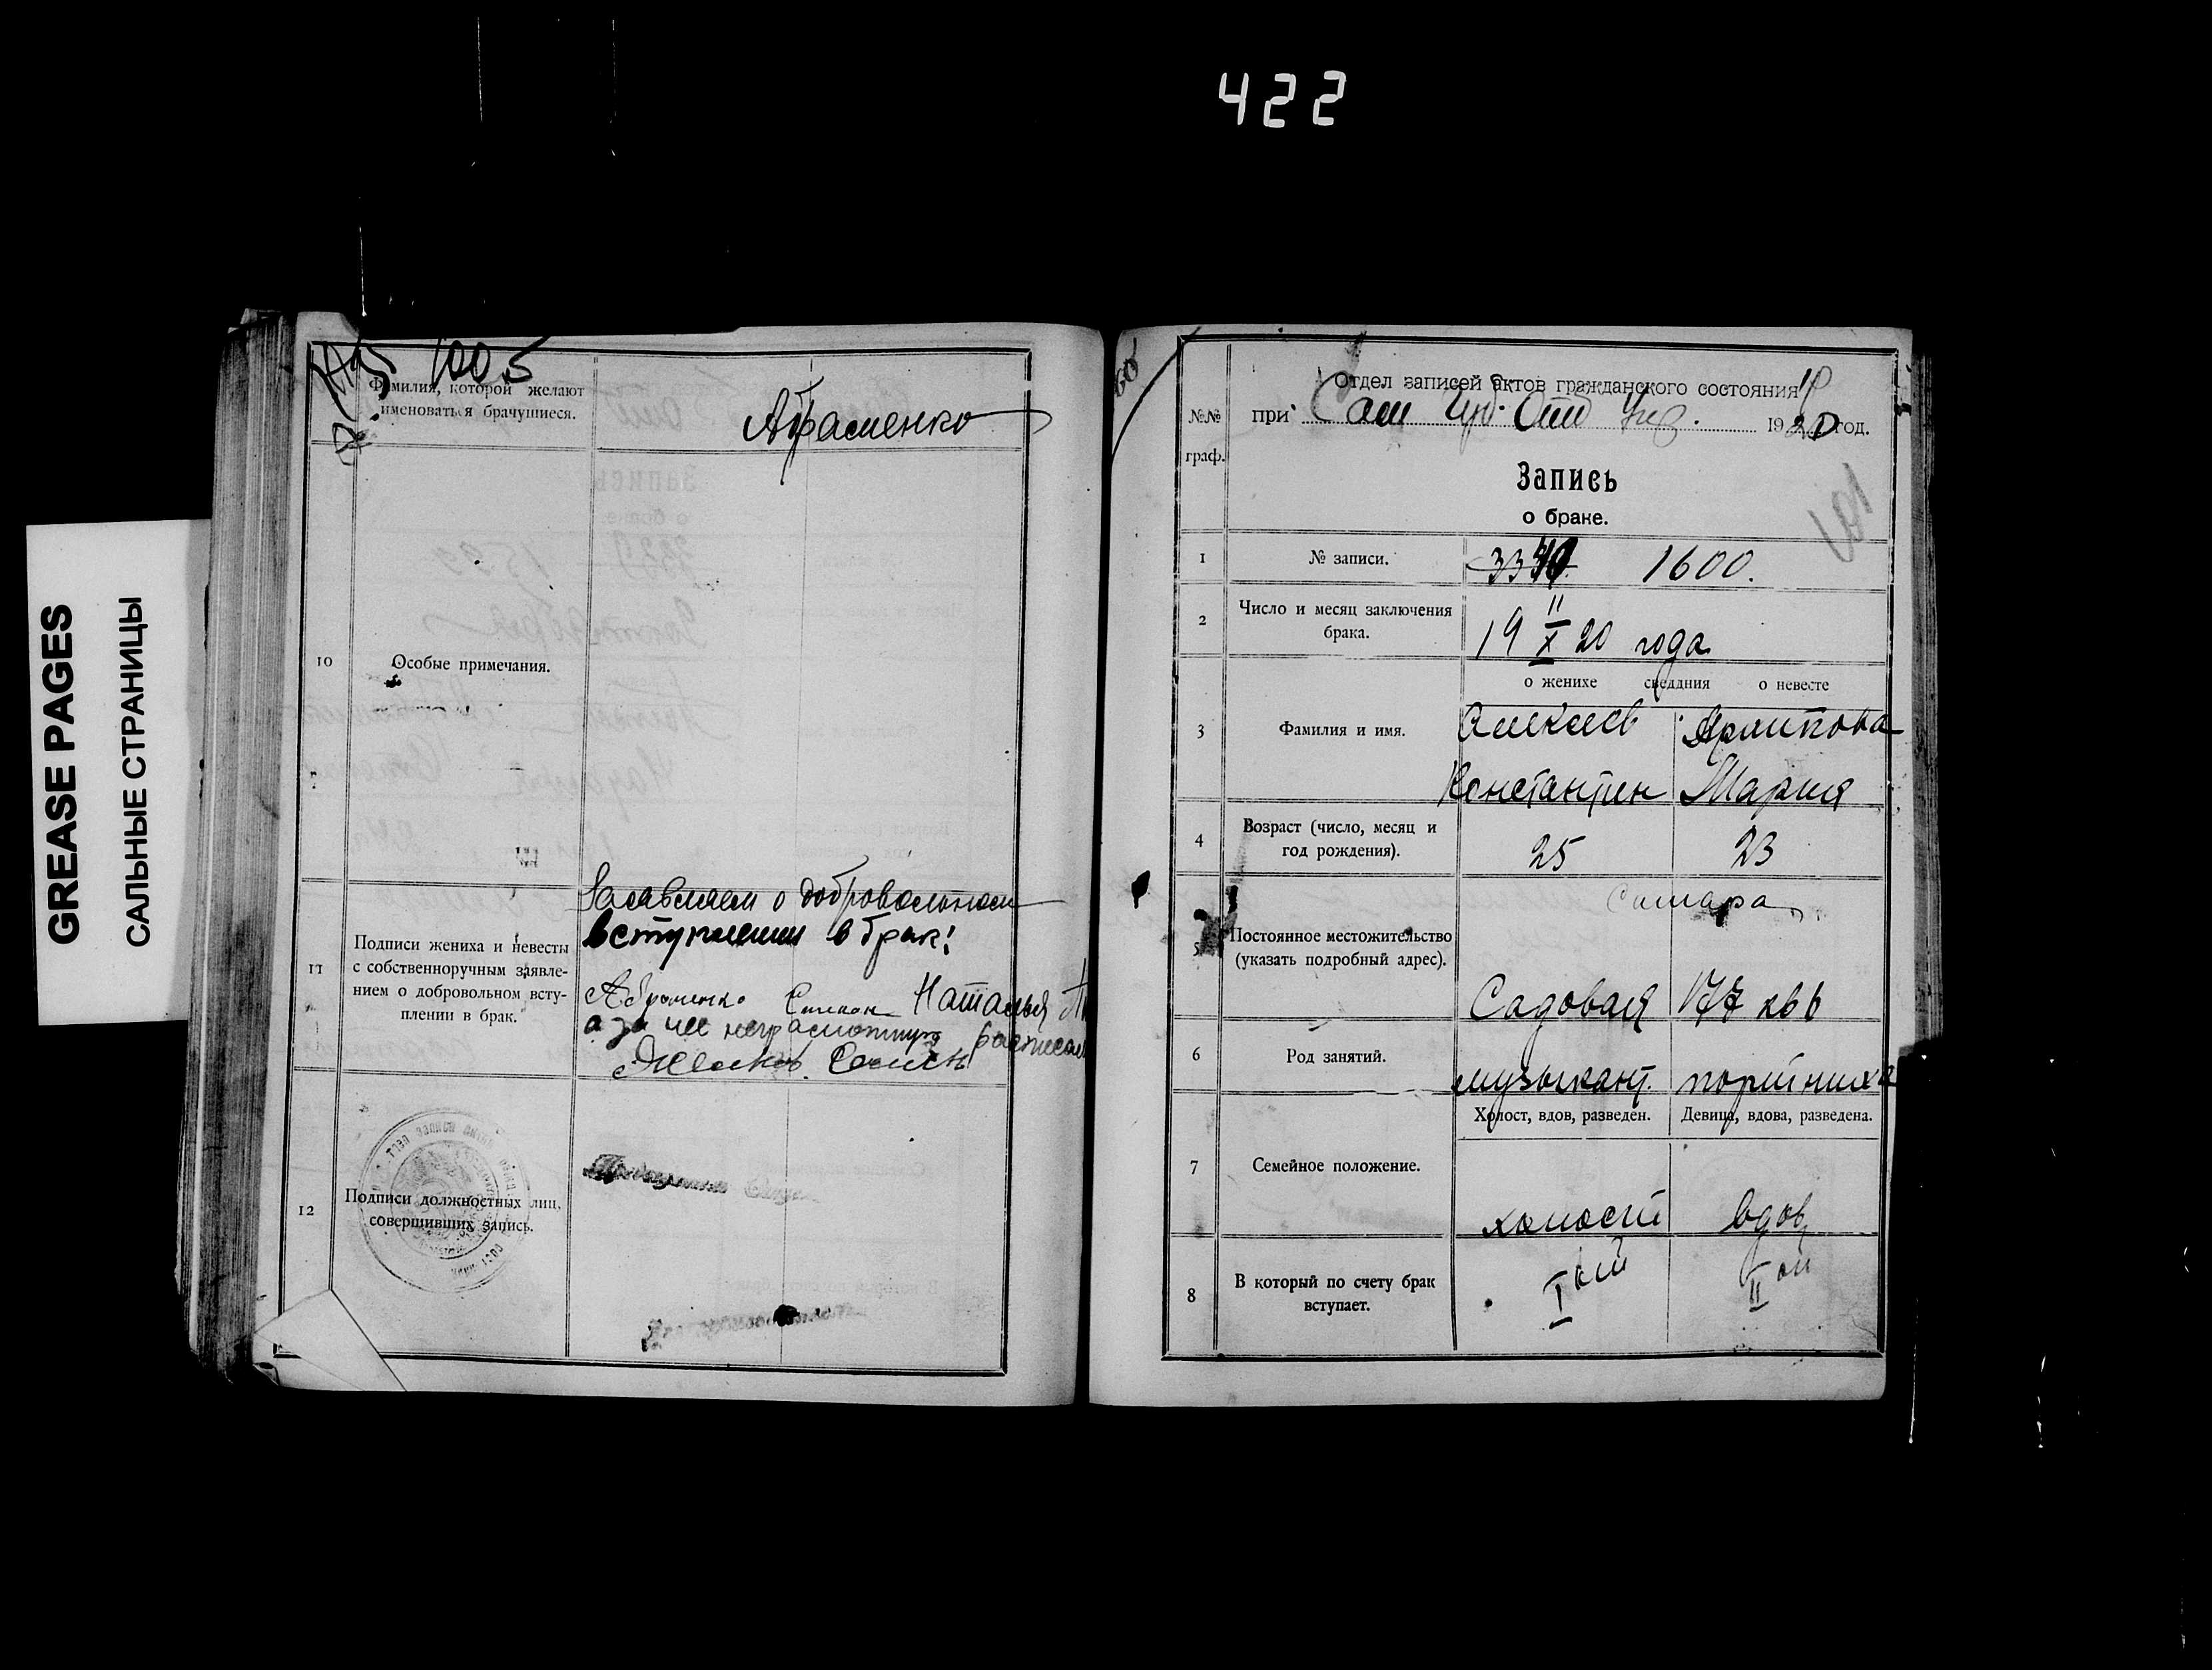 422
GREASE PAGES
САЛЬНЫЕ СТРАНИЦЫ
1005
Фамилия, которой желают
именоваться брачущиеся.
Абраменко
10
Особые примечания.
11
Подписи жениха и невесты
с собственноручным заявле-
нием о добровольном всту-
плении в брак.
Заявляем о добровольном
вступлении в брак!
Абраменко Степан Наталья
а за нее неграмотную расписал
12
Подписи должностных лиц,
совершивших запись.
№№
граф.
Отдел записей актов гражданского состояния
при Сам Губ. Отд Упр. 1920 год.
Запись
о браке.
1
№ записи.
3340 1600.
2
Число и месяц заключения
брака.
19 II/X 20 года
о женихе сведдния о невесте
3
Фамилия и имя.
Алексеев
Константин Мария
4
Возраст (число, месяц и
год рождения).
25 23
5
Постоянное местожительство
(указать подробный адрес).
Самара
Садовая 177 кв 6
6
Род занятий.
музыкант. портниха
7
Семейное положение.
Холост, вдов, разведен. Девица, вдова, разведена.
холост вдов
8
В который по счету брак
вступает.
I ый II ой